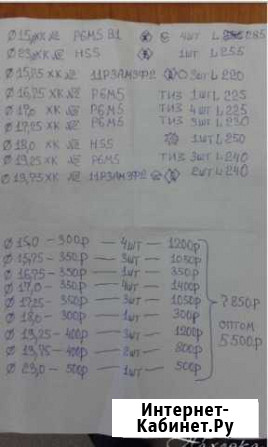 Ø15,0 ХК №2 Р6М5 В1 4ШТ L 285
Ø23,0 ХК №2 HSS 1ШТ L255
Ø15,75 ХК №2 11Р3АМ3Ф2 3ШТ L220
Ø16,75 ХК №2 Р6М5 ТИЗ 1ШТ L225
Ø17,0 ХК №2 Р6М5 ТИЗ 4ШТ L225
Ø17,25 ХК №2 Р6М5 ТИЗ 3ШТ L230
Ø18,0 ХК №2 HSS 1ШТ L250
Ø19,25 ХК №2 Р6М5 ТИЗ 3ШТ L240
Ø19,75 ХК №2 11Р3АМ3Ф2 2ШТ L240
Ø15,0 – 300р — 4шт — 1200р
Ø15,75 – 350р — 3шт — 1050р
Ø16,75 – 350р — 1шт — 350р
Ø17,0 – 350р — 4шт — 1400р
Ø17,25 – 350р — 3шт — 1050р
Ø18,0 – 300р — 1шт — 300р
Ø19,25 – 400р — 3шт — 1200р
Ø19,75 – 400р — 2шт — 800р
Ø23,0 – 500р — 1шт — 500р
7850р
оптом
5500р
Интернет-
Кабинет.Ру
Находка